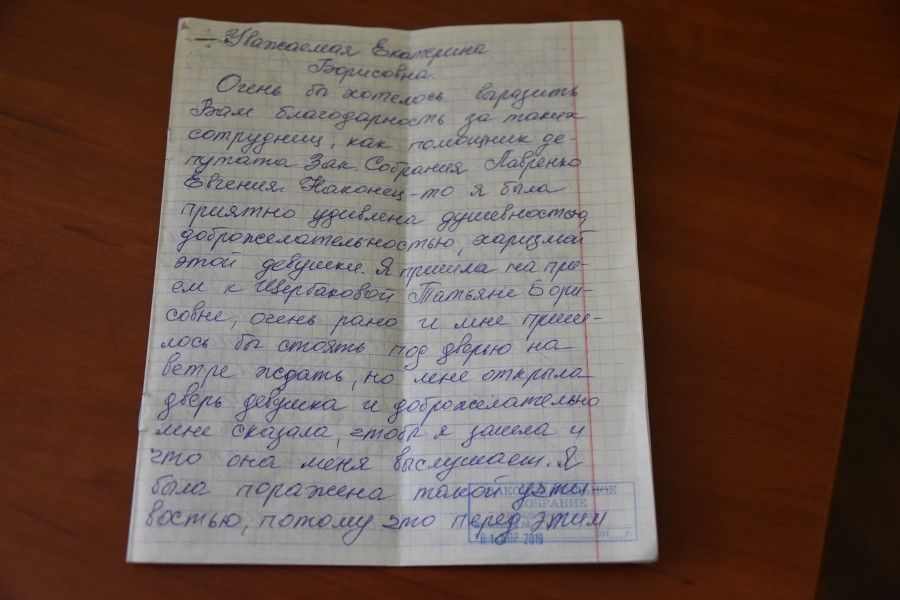 Уважаемая Екатерина
Борисовна.
Очень бы хотелось выразить
Вам благодарность за таких
сотрудниц, как помощник де-
путата Зак. Собрания Лавренко
Евгения. Наконец-то я была
приятно удивлена душевностью,
доброжелательностью, харизмой
этой девушки. Я пришла на при-
ем к Щербаковой Татьяне Бори-
совне, очень рано и мне приш-
лось бы стоять под дверью на
ветре ждать, но мне открыла
дверь девушка и доброжелательно
мне сказала, чтобы я зашла и
что она меня выслушает. Я
была поражена такой учти
востью, потому что перед этим
ЗАКОНОДАТЕЛЬНОЕ
СОБРАНИЕ
2019